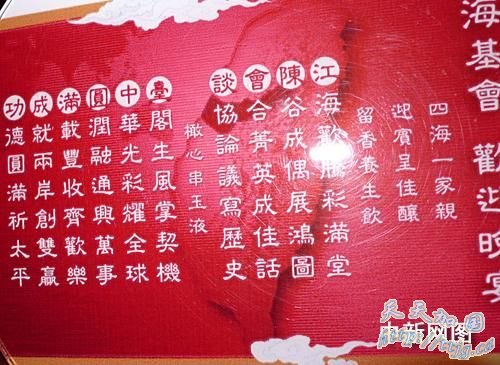 海基會 歡迎晚宴
四海一家親
迎賓呈佳釀
留香養生飲
江海歡騰彩滿堂
陳谷成偶展鴻圖
會合菁英成佳話
談協論議寫歷史
橄心串玉液
臺閣生風掌契機
中華光彩耀全球
圓潤融通興萬事
滿載豐收齊歡樂
成就兩岸創雙贏
功德圓滿祈太平
天天加国
中新网图